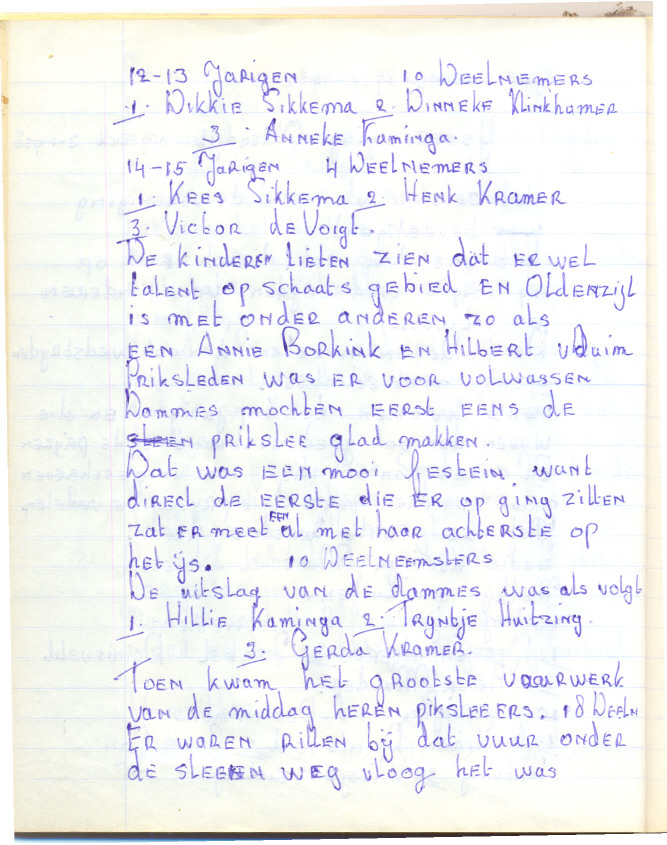 12-13 Jarigen 10 Deelnemers
1. Dikkie Sikkema 2. Winneke Klinkhamer
3. Anneke Kaminga.
14-15 Jarigen 4 Deelnemers
1. Kees Sikkema 2. Henk Kramer
3. Victor de Voigt.
De kinderen lieten zien dat er wel
talent op schaats gebied en Oldenzijl
is met onder anderen zo als
een Annie Borkink en Hilbert vduim
Priksleden was er voor volwassen
Dammes mochten eerst eens de
sleen prikslee glad makken.
Dat was een mooi want
direct de eerste die er op ging zitten
zat er meet een al met haar achterste op
het ijs. 10 Deelneemsters
De uitslag van de dammes was als volgt
1. Hillie Kaminga 2. Tryntje Huitzing.
3. Gerda Kramer.
Toen kwam het grootste vuurwerk
van de middag heren piksleeers. 18 Deeln
Er waren ritten bij dat vuur onder
de sleeen weg vloog het was